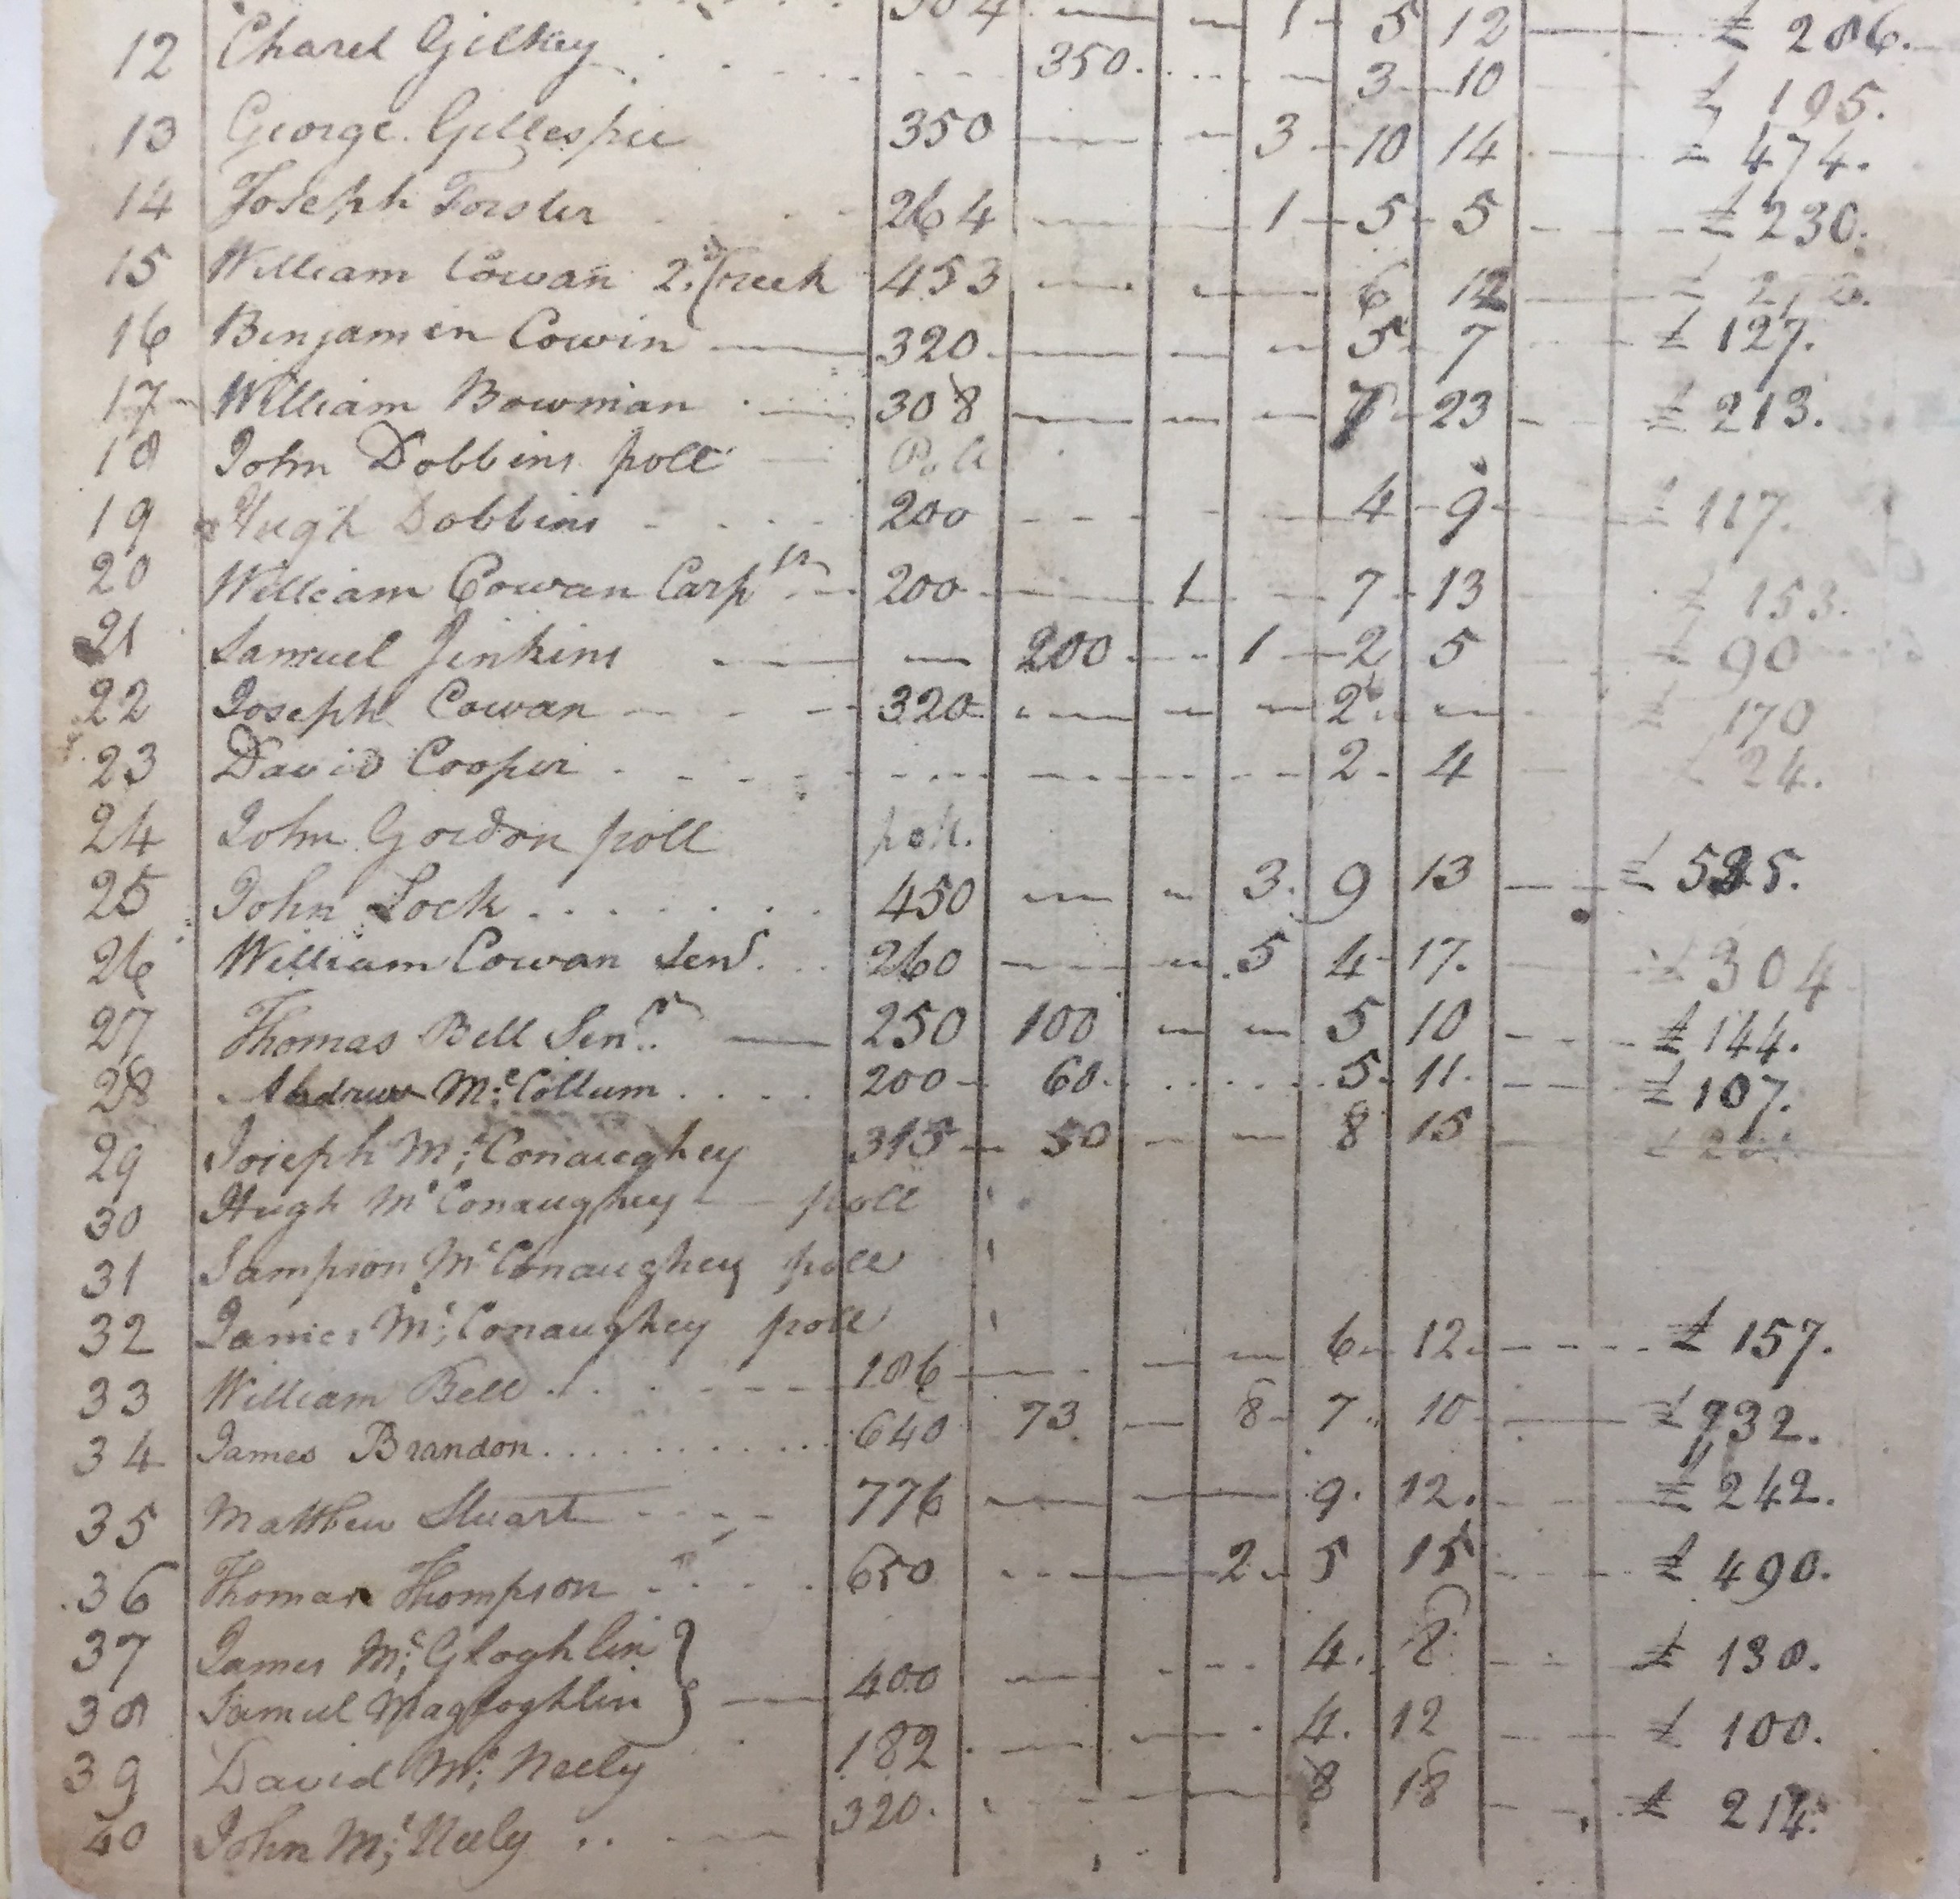 304 — — 1 5 12 — £ 286.
12 Charel Gilkey 350. 3 10 £ 195.
13 George Gillespie 350 — — 3 10 14 — £ 474.
14 Joseph Forster 264 — 1 5 5 — £ 230.
15 William Cowan 2.d Creek 453 — — — 6 12 — £
16 Benjamin Cowin — 320 — — — 5 7 — £ 127.
17 William Bowman — 308 — — — 7 23 — £ 213.
18 John Dobbins poll — Poll
19 Hugh Dobbins 200 — 4 9 £ 117.
20 William Cowan Carptr 200 — 1 7 13 £ 153.
21 Samuel Jenkins — — 200 1 2 5 £ 90
22 Joseph Cowan — 320 — — — 2 — £ 170
23 David Cooper 2 4 £ 24.
24 John Gordon poll poll.
25 John Lock 450 — — 3. 9 13 — £
26 William Cowan Senr. 260 — — 5 4 17. £ 304
27 Thomas Bell Senr. — 250 100 — — 5 10 £ 144.
28 Andrew Mc:Collum 200 60 5 11. £ 107.
29 Joseph Mc:Conaughey 315 50 — — 8 15 £
30 Hugh Mc Conaughey — poll
31 Sampson Mc Conaughey poll
32 James Mc:Conaughey poll
33 William Bell 186 — — — 6 12 £ 157.
34 James Brandon 640 73 — 8 7 10 — £ 732.
35 Matthew Stuart 776 — — 9. 12. £ 242.
36 Thomas Thompson 650 — 2 5 15 £ 490.
37 James Mc:Gloghlin } 4. 8 £ 130.
38 Samuel Magloghlin } — 400 —
39 David Mc: Neely 182 — 4. 12 £ 100.
40 John Mc:Neely 320. — 8 18 £ 214.